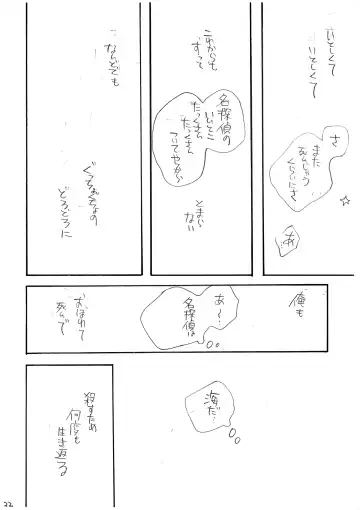 いとしくて
いとしくて
さ
また
死んじゃう
くらいにさ
あ
これからも
ずっと
名探偵の
いいとこ
たっくさん
たっくさん
ついてやっから
とまら
ない
なんどでも
ぐっちゃぐちゃの
どろどろに
俺も
あ〜
名探偵は
おぼれて
死んで
海だ…
殺すため
何度も
生き返る
22